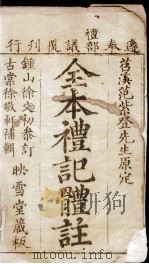 遵奉禮部議覆刊行
苕溪范紫登先生原定
全本禮記體註
鍾山徐文初參訂
古棠徐敬軒補輯
映雪堂藏板